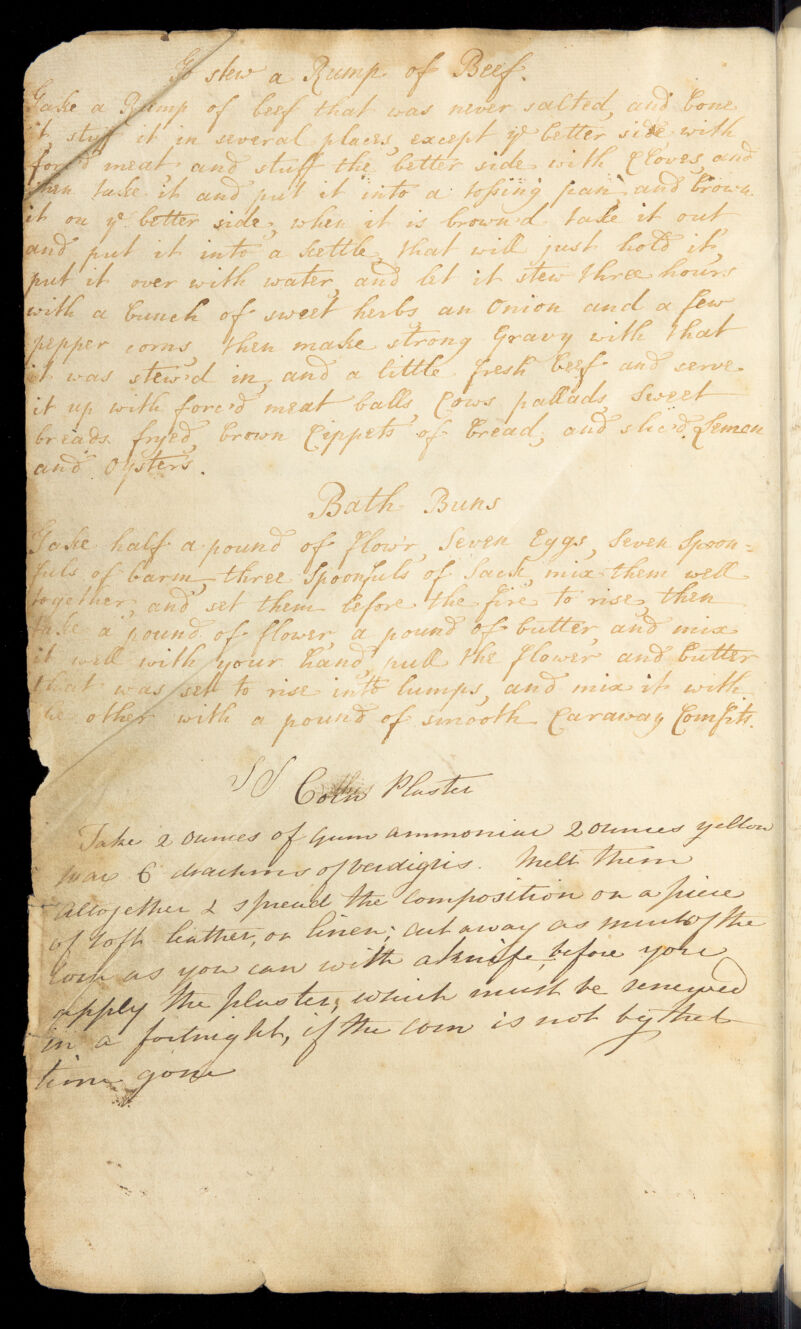 To stew a Rump of Beef.
Take a Rump of beef that was never salted, and bone
it, stuff it in several places, except ye better side with
forc'd meat, and stuff the better side with Cloves, and
then take it and put it into a tossing pan, and brown
it on ye better side, when it is brown'd take it out
and put it into a kettle, that will just hold it,
put it over with water, and let it stew three hours
with a bunch of sweet herbs an Onion and a few
pepper corns, then make strong Gravy with that
it was stew'd in, and a little fresh beef and serve
it up with forc'd meat balls, Cows pallads, Sweet
breads fryed, brown Cippets of bread, and slic'd Lemon
and Oysters.
Bath Buns
Take half a pound of flow'r, Seven Eggs, Seven Spoon=
fuls of barm, three Spoonfuls of Sack, mix them well
together, and set them before the fire to rise, then
take a pound of flower a pound of butter, and mix
it well with your hand, pull the flower and butter
that was set to rise into lumps, and mix it with
the other with a pound of smooth Caraway Comfits.
Corn Plaster
Take 2 ounces of gum ammoniac 2 ounces yellow
wax 6 drachms of verdigris. Melt them
altogether & spread the composition on a piece
of soft leather, or linen; cut away as much of the
corn as you can with a knife, before you
apply the plaster, which must be renewed
in a fortnight, if the corn is not by that
time gone